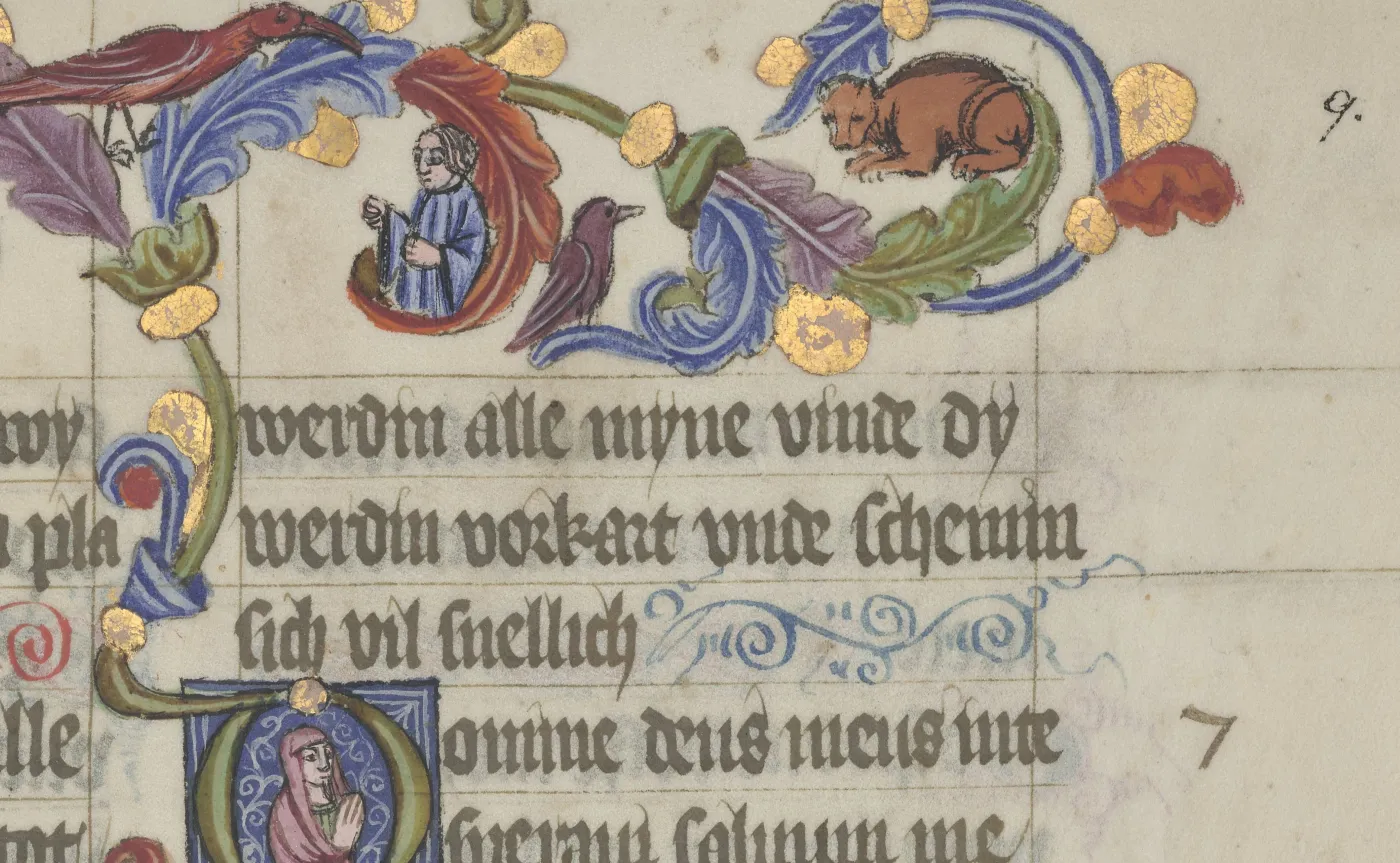 9.
wy
pla
lle
tot
werdin alle myne vinde dy
werdin vorkart vnde schemin
sich vil snellich
Domine deus meus inte
speraui saluum me
7